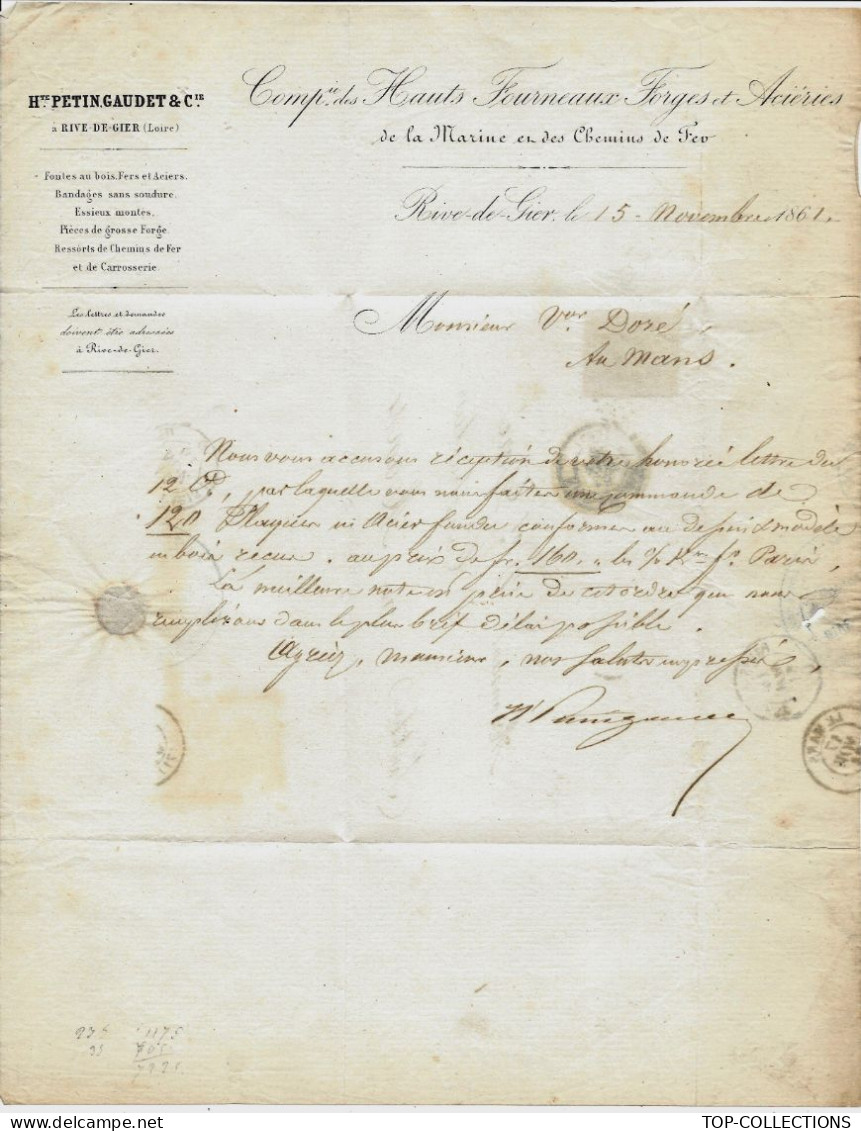 Hte PETIN, GAUDET & CIE
à RIVE-DE-GIER (Loire)
Fontes au bois. Fers et Aciers.
Bandages sans soudure.
Essieux montés.
Pièces de grosse Forge.
Ressorts de Chemins de Fer
et de Carrosserie.
Les lettres et demandes
doivent être adressées
à Rive-de-Gier.
Compie. des Hauts Fourneaux Forges et Aciéries
de la Marine et des Chemins de Fer
Rive-de-Gier, le 15 Novembre 1861.
Monsieur Vor Doré,
Au Mans.
Nous vous accusons réception de votre honorée lettre du
12 Ct, par laquelle vous nous faites une commande de
120 en Acier fondu conformes au dessin & modèle
en bois recus. au prix de fr. 160. " les % K fo Paris,
La meilleure note est prise de cet ordre que nous
remplirons dans le plus bref délai possible.
Agréez, monsieur, nos salutes empressés
LE MANS
1875
TOP-COLLECTIONS